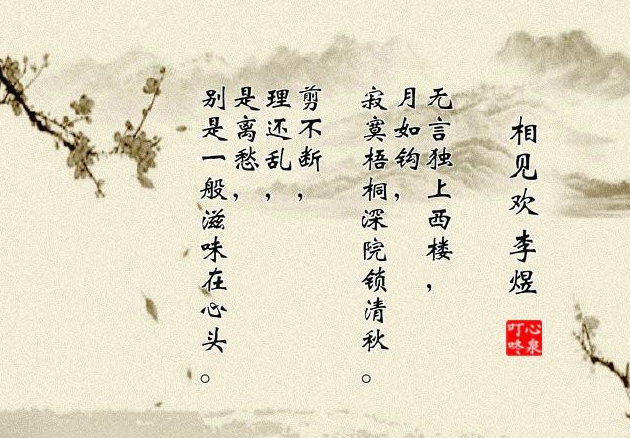 相见欢 李煜
心泉
叮咚
无言独上西楼，
月如钩，
寂寞梧桐深院锁清秋。
剪不断，
理还乱，
是离愁，
别是一般滋味在心头。